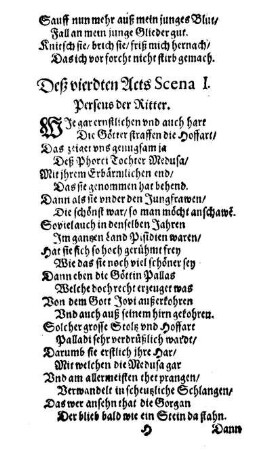 Sauff nun mehr auß mein junges Blut/
Fall an mein junge Glieder gut.
Knirsch sie/ brich sie/ friß mich hernach/
Das ich vor forcht nicht stirb gemach.
Deß vierdten Acts Scena I.
Perseus der Ritter.
Wie gar ernstlichen vnd auch hart
Die Götter straffen die Hoffart/
Das zeiget vns gnugsam ja
Deß Phorci Tochter Medusa/
Mit jhrem Erbärmlichen end/
Das sie genommen hat behend.
Dann als sie vnder den Jungfrawen/
Die schönst war/ so man möcht anschawē.
Soviel auch in denselben Jahren
Im gantzen Land Pisidien waren/
Hat sie sich so hoch gerühmt frey
Wie das sie noch viel schöner sey
Dann eben die Göttin Pallas
Welche doch recht erzeuget was
Von dem Gott Jovi außerkohren
Vnd auch auß seinem hirn gekohren.
Solcher grosse Stoltz vnd Hoffart
Palladi sehr verdrüßlich wardt/
Darumb sie erstlich jhre Har/
Mit welchen die Medusa gar
Vnd am allermeisten thet prangen/
Verwandelt in scheutzliche Schlangen/
Das wer ansehn that die Gorgan
Der blieb bald wie ein Stein da stahn.
H Dann